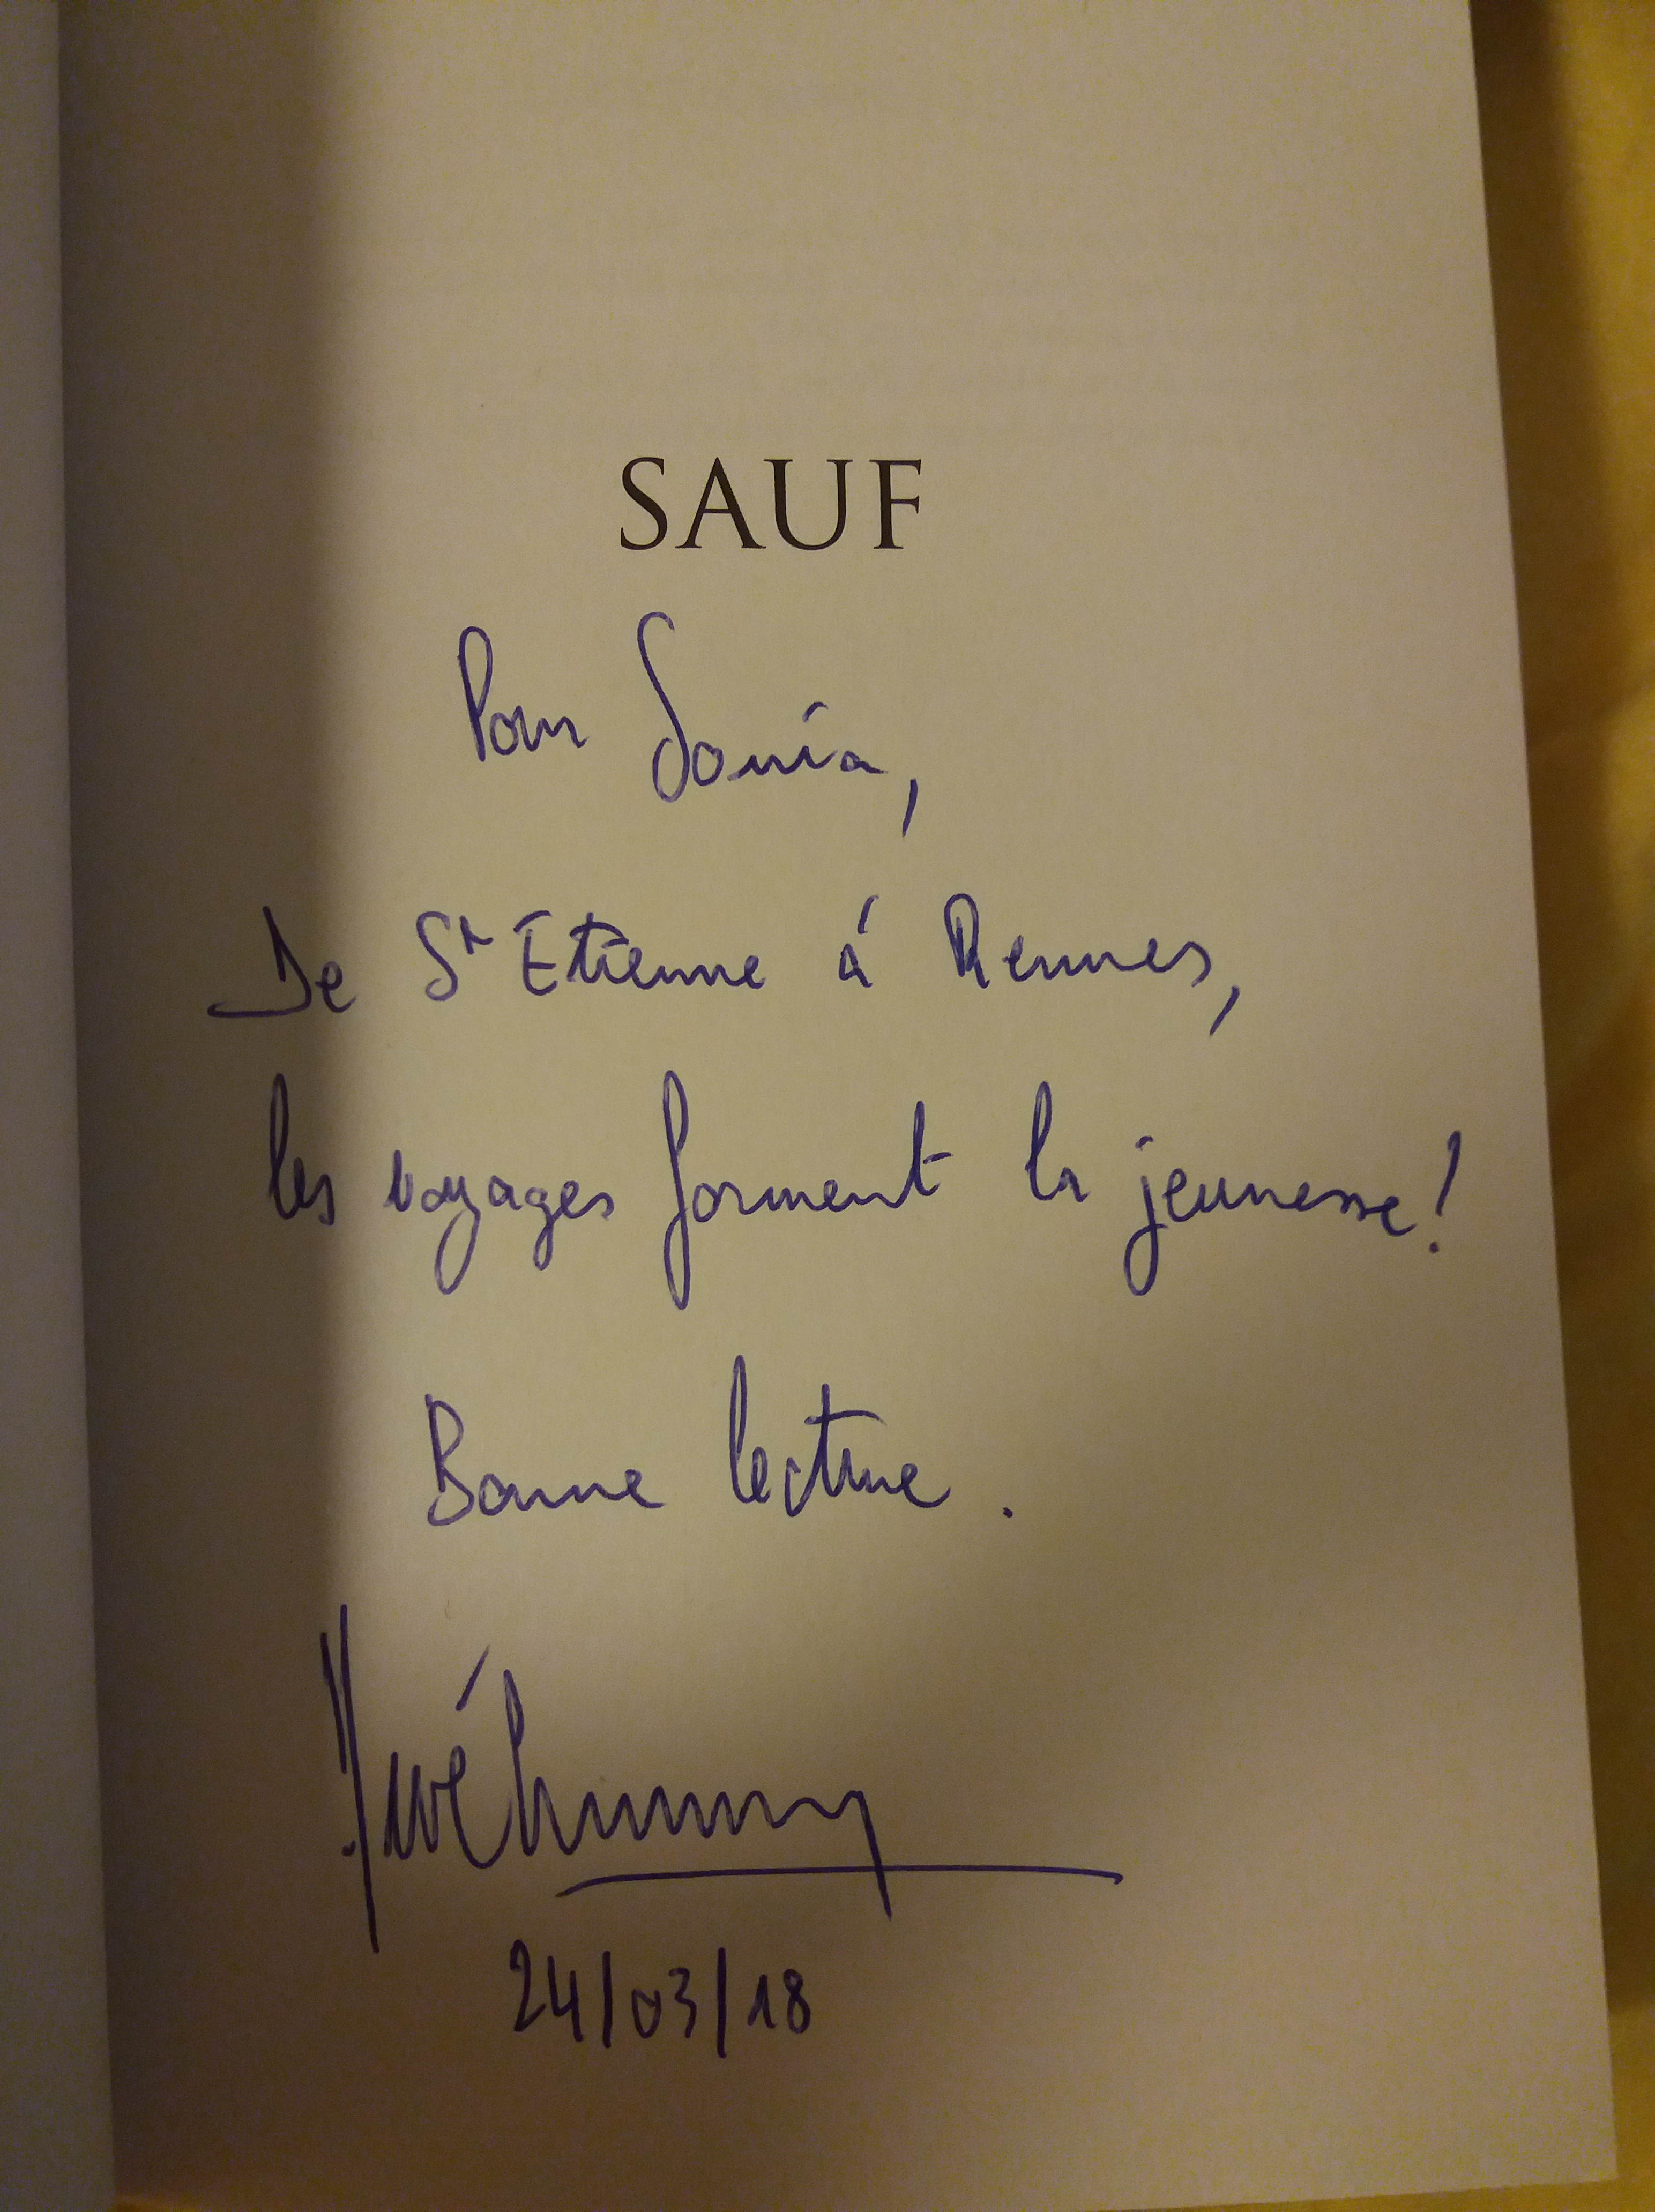 SAUF
Pour Sonia,
De St Etienne à Rennes,
les voyages forment la jeunesse !
Bonne lecture .
24/03/18